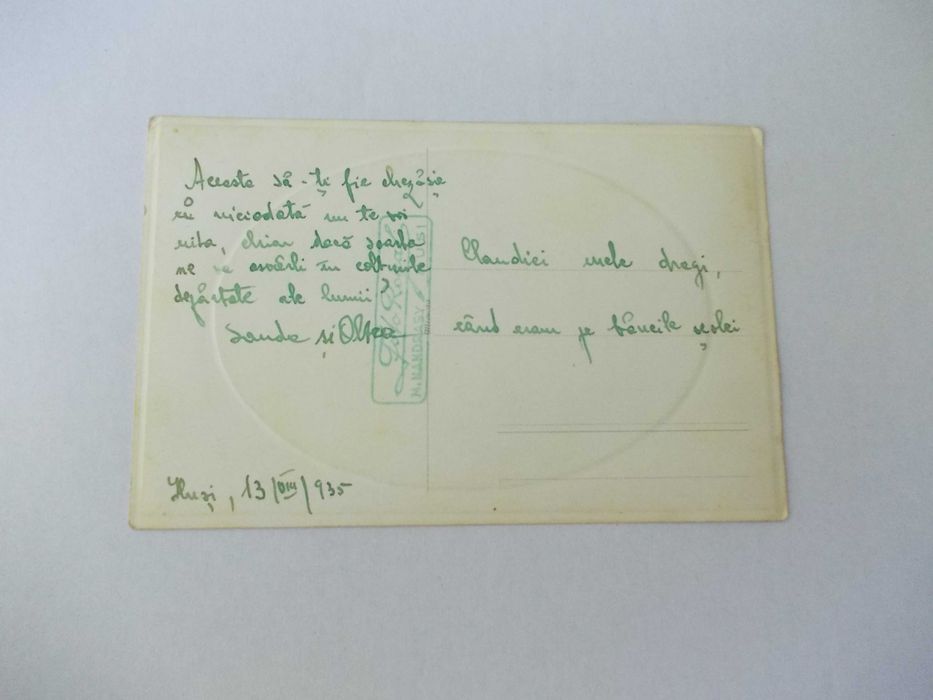 Aceasta să-ți fie chezășie
că niciodată nu te voi
uita, chiar dacă soarta
ne va asvârli în colțurile
depărtate ale lumii
Sanda și Oltea
Huși, 13/VIII/935
Claudiei mele dragi,
când eram pe băncile școlei
Foto Royal
M. MANDRASY HUSI